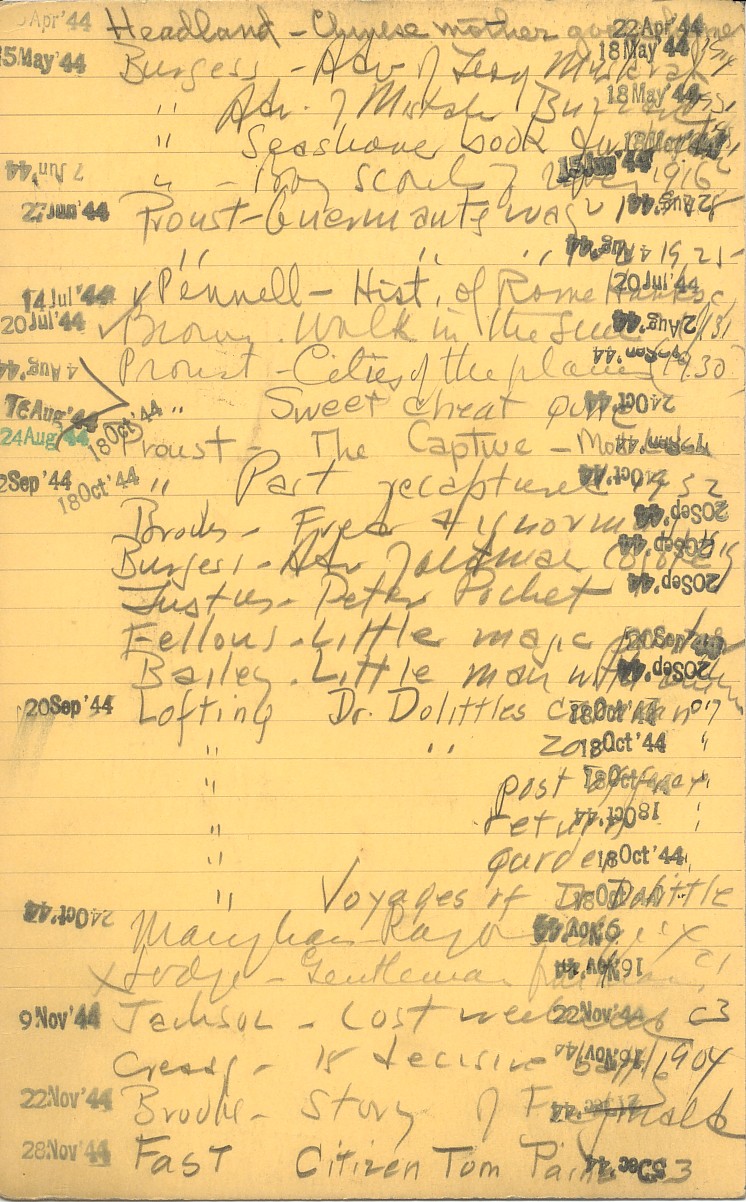 Apr'44 Headland - Chinese mother goose 22 Apr'44
15 May'44 Burgess - Adv of Jerry Muskrat 18 May'44
" Adv. of Mistah Buzzard 18 May'44
" Seashore book 18 May'44
7 Jun '44 " - Boy scouts 15 Jun'44 1916
27 Jun'44 Proust - Guermantes way 2 Aug'44
" " " Aug'44 1925
14 Jul'44 ✓ Pennell - Hist. of Rome Hanks 20 Jul'44
20 Jul'44 ✓ Brown. Walk in the Sun 2 Aug'44
4 Aug'44 Proust - Cities of the plain Sep'44 (1930)
16 Aug'44 18 Oct'44 " Sweet cheat gone 24 Oct'44
24 Aug'44 Proust - The Captive -
2 Sep'44 18 Oct'44 " Past recaptured Oct'44 1932
Brooks - Fred 20 Sep'44
Burgess - Adv 20 Sep'44
Justus - Peter Pocket 20 Sep'44
Fellows - Little magic 20 Sep'44
Bailey. Little man with 20 Sep'44
20 Sep'44 Lofting Dr. Dolittles caravan 18 Oct'44
" " Zoo 18 Oct'44 "
" post office 18 Oct'44 "
" return 18 Oct'44
" garden 18 Oct'44
" Voyages of Dr. Dolittle 18 Oct'44
24 Oct'44 Maugham - Razor's 9 Nov'44
x Hodge - Gentleman 16 Nov'44 c1
9 Nov'44 Jackson - Lost weekend 22 Nov'44 c3
Creasy - 15 decisive battles 16 Nov'44 1904
22 Nov'44 Brooks - Story of Dec'44
28 Nov'44 Fast Citizen Tom Paine 5 Dec'44 c3